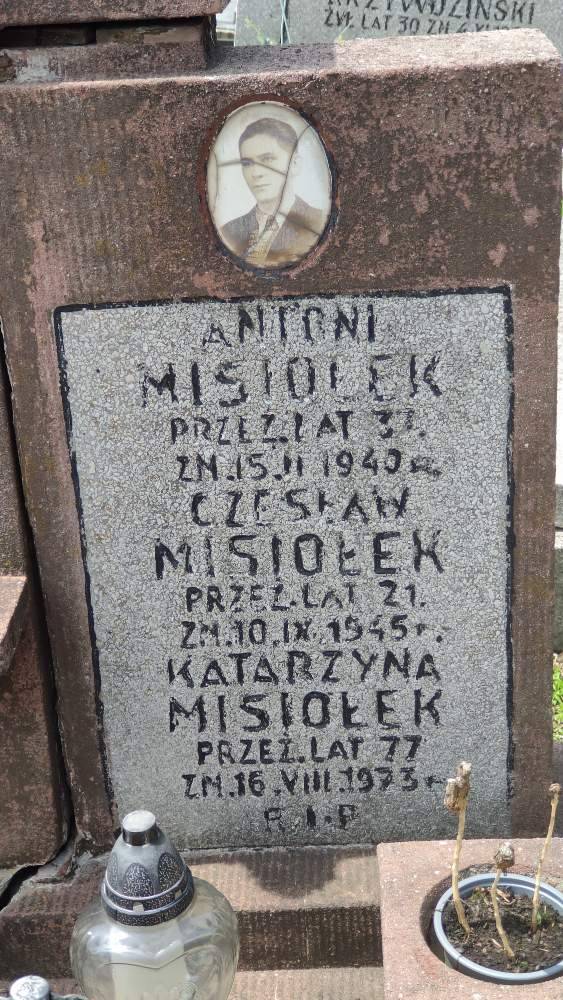 KRZYWDZIŃSKI
ŻYŁ LAT 30 ZM.
ANTONI
MISIOŁEK
PRZEŻ. LAT 37.
ZM. 15. II 1940 R.
CZESŁAW
MISIOŁEK
PRZEŻ. LAT 21.
ZM. 10. IX. 1945 R.
KATARZYNA
MISIOŁEK
PRZEŻ. LAT 77
ZM. 16. VIII. 1973 R
R. I. P